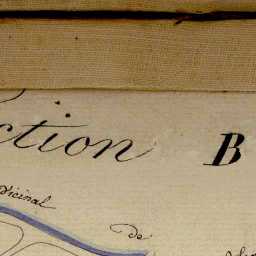 ction B
vicinal
de